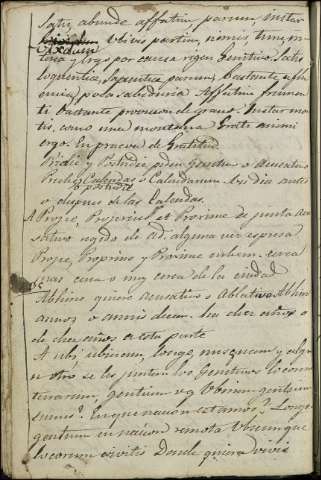 Satis, abunde affatim, parum, instar
Ubivis partim, nimis, tum, in
ergo por causa rigen Genitivo. Satis
loquentia, Sapientia parum, bastante elo
cuencia, poca sabiduria Affatim frumen
ti bastante provision de grano. Instar mon
tis, como una montaña Gratis animi
ergo. En prueva de Gratitud
Pridie y Postridie piden Genitivo o Acusativo
Pridie Calendas o Calendarum el dia antes
o postridie
o despues de las Calendas.
A Prope, Propius et Proxime se junta Acu
sativo regido de ad. alguna vez espresa
Prope, Propius y Proxime urbem. cerca
mas cerca o muy cerca de la ciudad
Abhinc quiere Acusativo o Ablativo Abhinc
annos o annis decem. ha diez años o
de diez años a esta parte
A ubi, ubicum, longe, nusquam y algu
n otro se les juntan los Genitivos locorum
terrarum, gentium vg Ubinam gentium
sumus? En que nacion estamos? Longe
gentium en nacion remota Ubicumque
locorum vivitis Donde quiera vivis